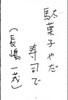 駄菓子やだ
寿司で
(長嶋一茂)